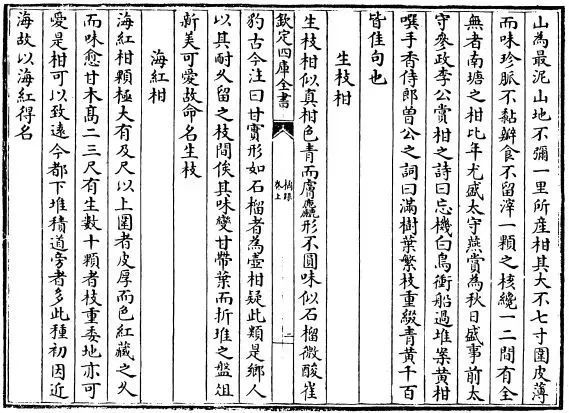 山為最泥山地不彌一里所産柑其大不七寸圍皮薄
而味珍脈不黏瓣食不留滓一顆之核纔一二間有全
無者南塘之柑比年尤盛太守燕賞為秋日盛事前太
守參政李公賞柑之詩曰忘機白鳥衝船過堆案黃柑
噀手香侍郎曾公之詞曰滿樹葉繁枝重綴青黃千百
皆佳句也
生枝柑
生枝柑似真柑色青而膚麤形不圓味似石榴微酸崔
欽定四庫全書
橘録
卷上
二
豹古今注曰甘實形如石榴者為壺柑疑此類是鄉人
以其耐久留之枝間俟其味變甘帶葉而折堆之盤俎
新美可愛故命名生枝
海紅柑
海紅柑顆極大有及尺以上圍者皮厚而色紅藏之久
而味愈甘木髙二三尺有生數十顆者枝重委地亦可
愛是柑可以致逺今都下堆積道旁者多此種初因近
海故以海紅得名